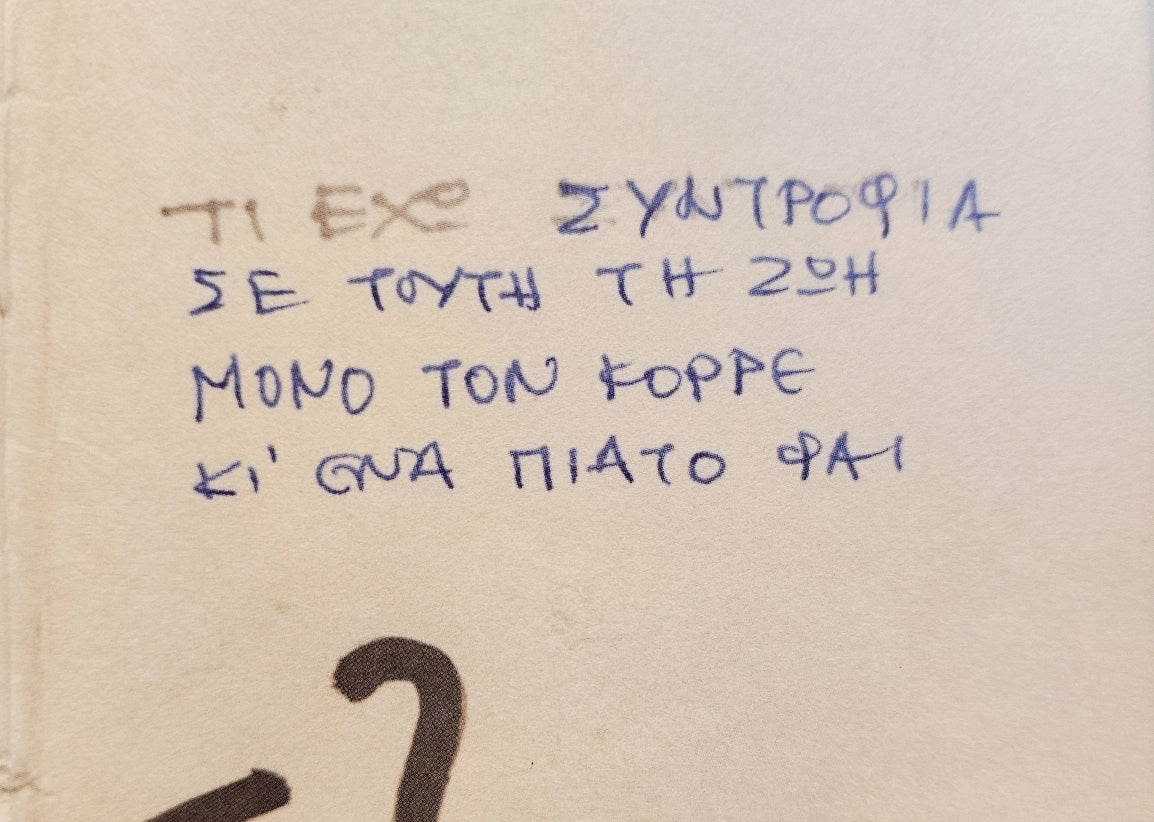 ΤΙ ΕΧΩ ΣΥΝΤΡΟΦΙΑ
ΣΕ ΤΟΥΤΗ ΤΗ ΖΩΗ
ΜΟΝΟ ΤΟΝ ΚΟΡΡΕ
ΚΙ' ΕΝΑ ΠΙΑΤΟ ΦΑΙ